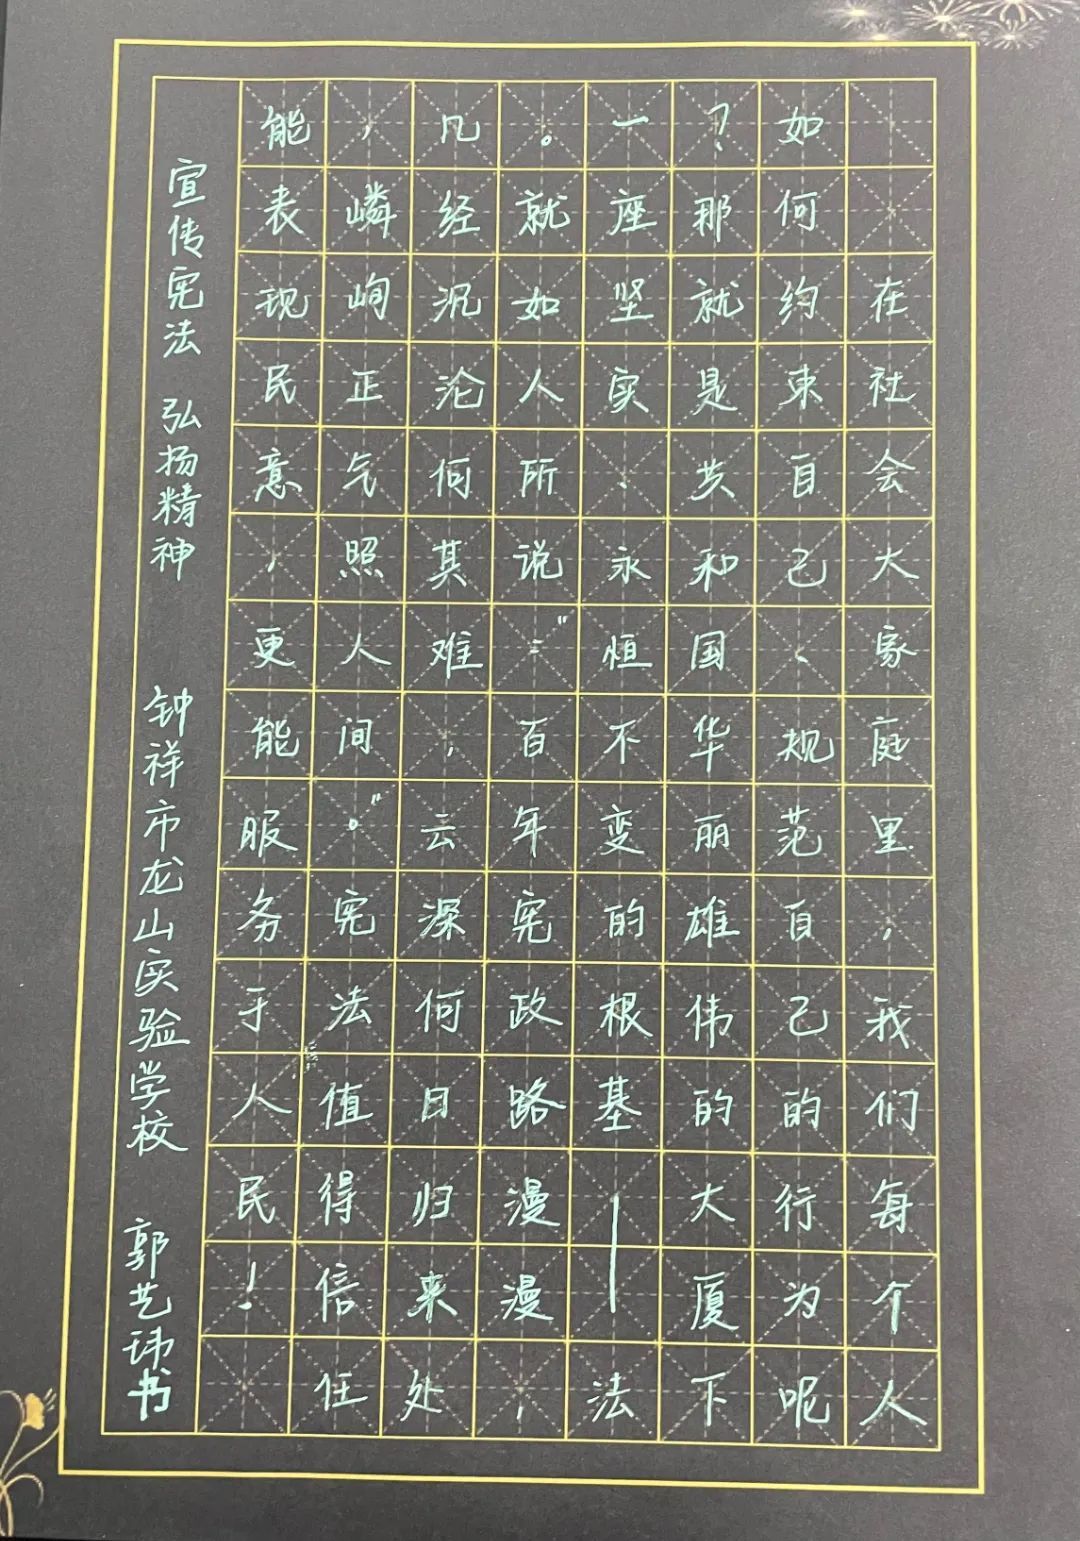 在社会大家庭里，我们每个人
如何约束自己、规范自己的行为呢
？那就是共和国华丽雄伟的大厦下
一座坚实、永恒不变的根基——法
。就如人所说：“百年宪政路漫漫，
几经沉沦何其难，云深何日归来处
，嶙峋正气照人间。”宪法值得信任
能表现民意，更能服务于人民！
宣传宪法 弘扬精神 钟祥市龙山实验学校 郭艺玮书